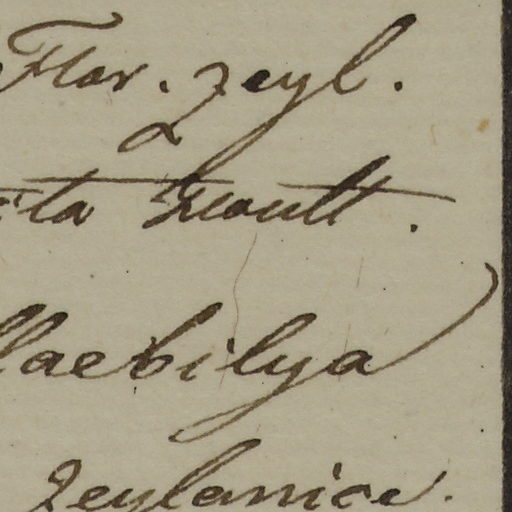 Flor. zeyl.
ita Houtt.
laebilya
Zeylanica.